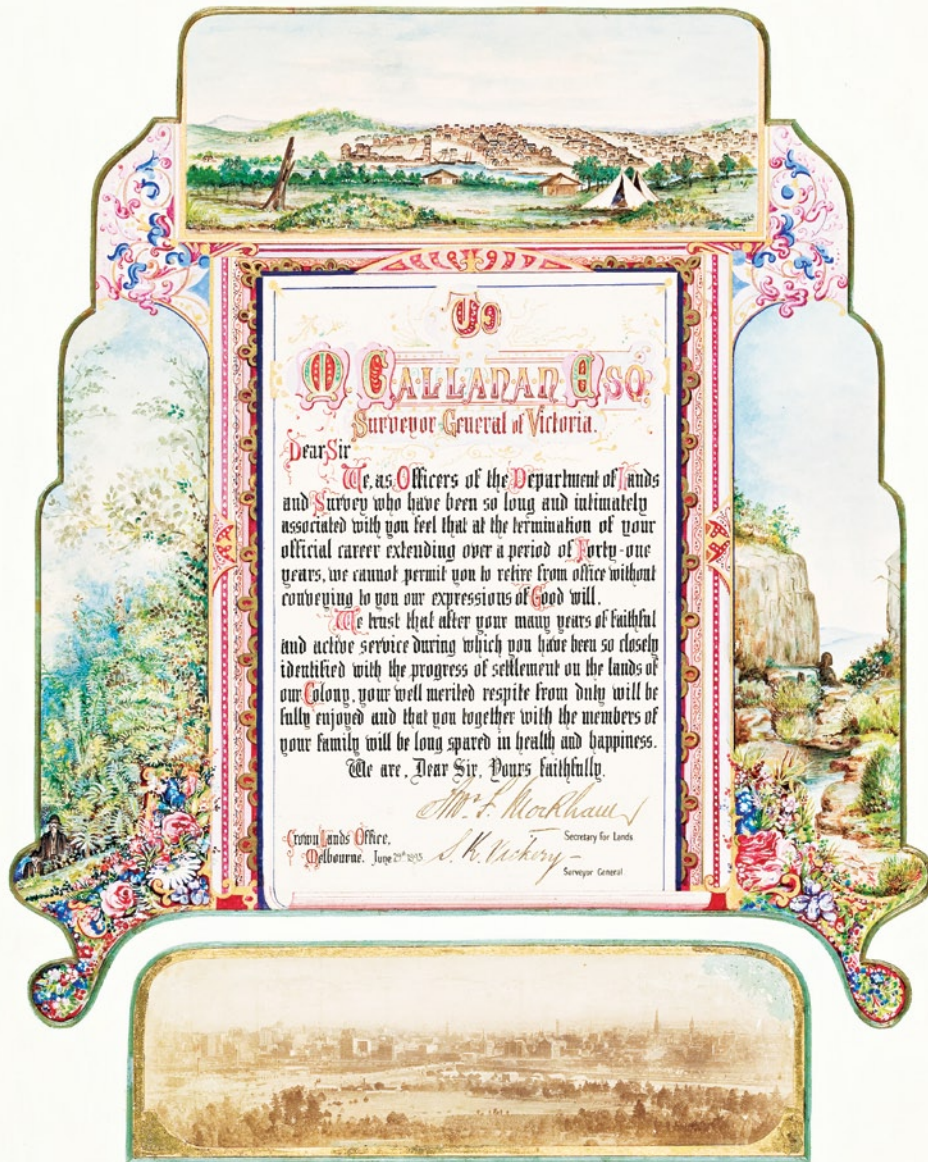 To
M CALLANAN ESQ.
Surveyor General of Victoria.
Dear Sir
We, as Officers of the Department of Lands
and Survey who have been so long and intimately
associated with you feel that at the termination of your
official career extending over a period of Forty-one
years, we cannot permit you to retire from office without
conveying to you our expressions of Good will.
We trust that after your many years of faithful
and active service during which you have been so closely
identified with the progress of settlement on the lands of
our Colony, your well merited respite from duty will be
fully enjoyed and that you together with the members of
your family will be long spared in health and happiness.
We are, Dear Sir, Yours faithfully.
Secretary for Lands
Crown Lands Office,
Melbourne. June 29th
S. K. Vickery
Surveyor General